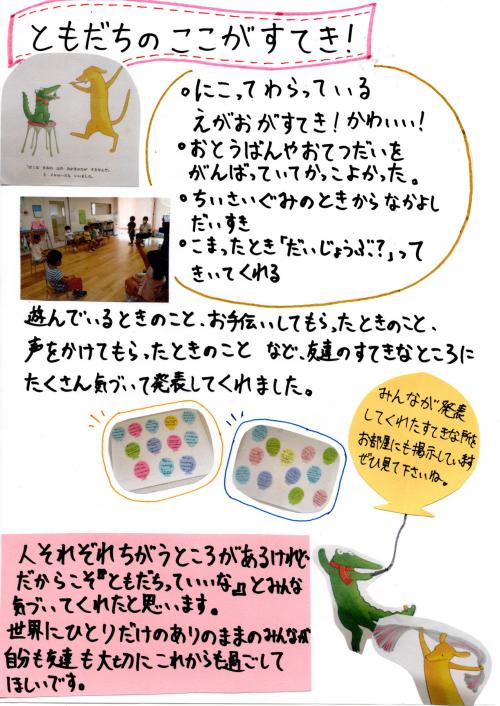 ともだちの ここがすてき！
「ぼくは きみの
と いいました。
○にこって わらっている
えがお がすてき！かわいい！
○おとうばんやおてつだいを
がんばっていてかっこよかった。
○ちいさいぐみのときからなかよし
だいすき
○こまったとき「だいじょうぶ？」って
きいてくれる
遊んでいるときのこと、お手伝いしてもらったときのこと、
声をかけてもらったときのこと など、友達のすてきなところに
たくさん気づいて発表してくれました。
みんなが発表
してくれたすてきな所を
お部屋にも掲示しています
ぜひ見て下さいね。
人それぞれちがうところがあるけれど
だからこそ『ともだちっていいな』とみんな
気づいてくれたと思います。
世界にひとりだけのありのままのみんなが
自分も友達も大切にこれからも過ごして
ほしいです。